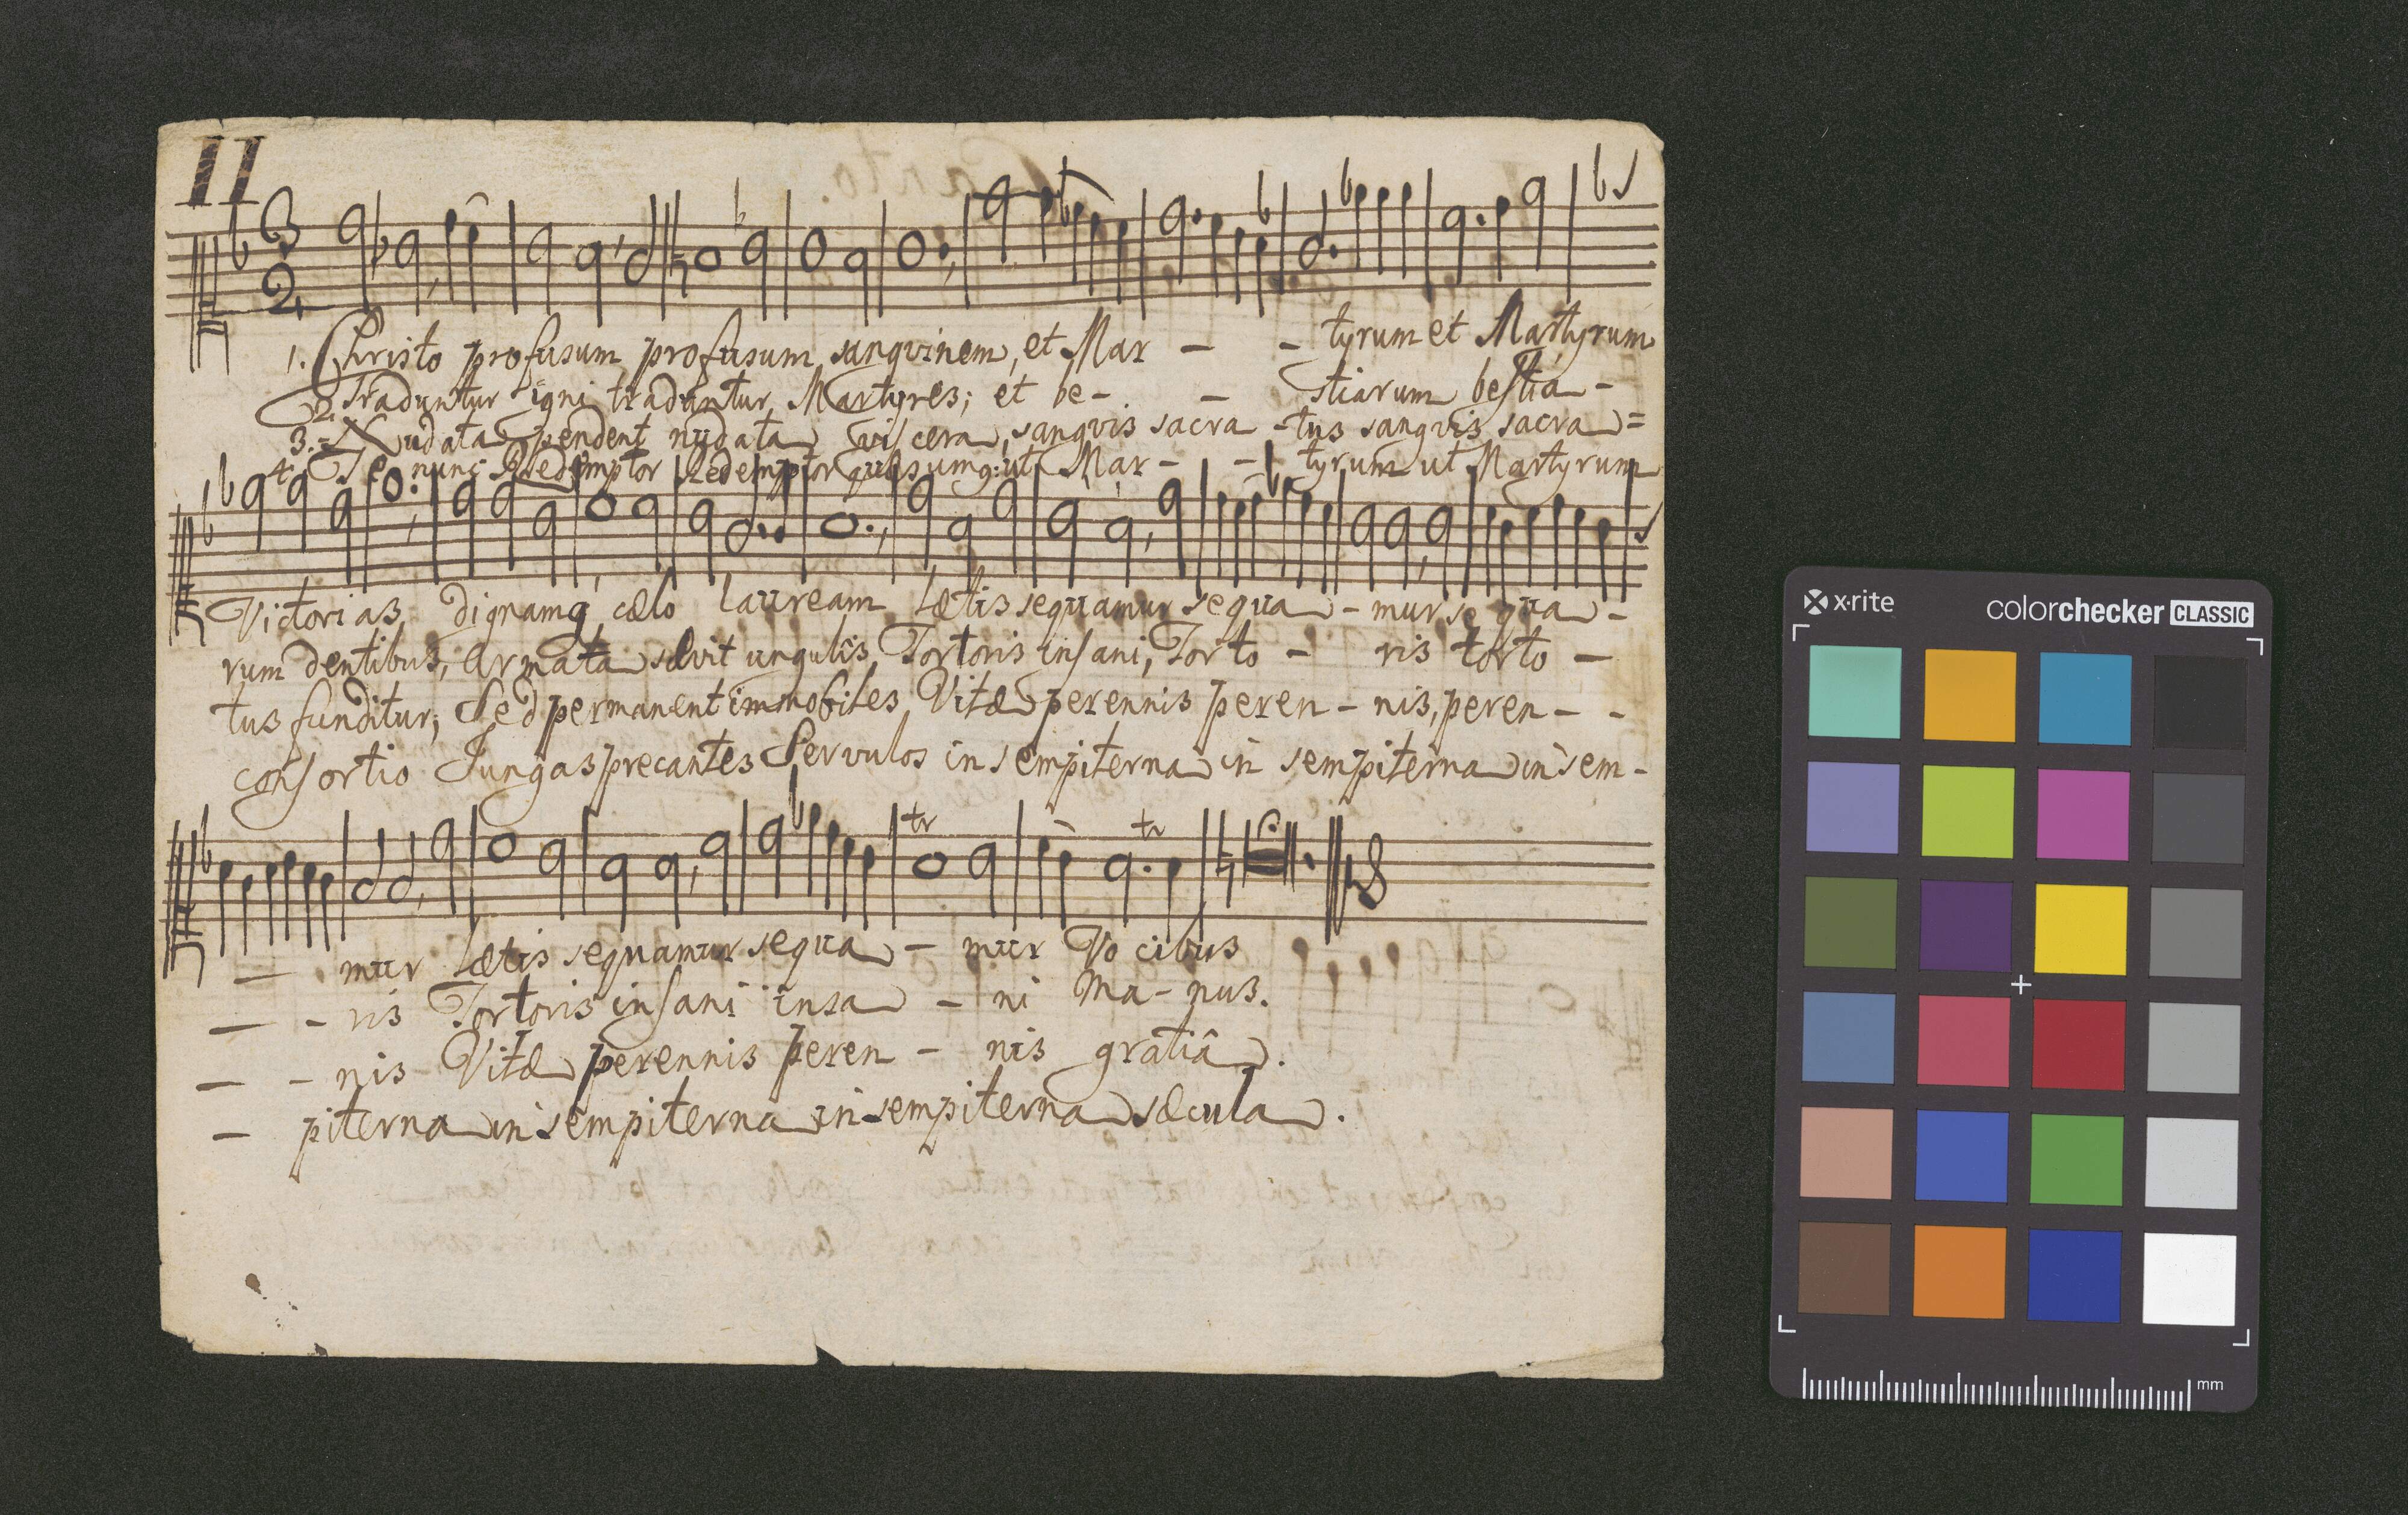 II
1. Christo profusum, profusum sanguinem, et Mar - - tyrum et Martyrum
2. Traduntur igni traduntur Martyres; et be- - stiarum bestia-
3. Nudata pendent nudata viscera, sangvis sacra - tus sangvis sacra=
4. Te nunc Redemptor Redemptor quæsumq: ut Mar- - tyrum ut Martyrum
Victorias, dignamq cælo lauream lætis sequamur sequa - mur sequa -
rum dentibus, Armata sævit ungulis Tortoris insani, Torto - ris torto -
tus funditur; Sed permanent immobiles Vitæ perennis peren - nis, peren - -
consortio Jungas precantes Servulos in sempiterna in sempiterna in sem-
tr tr
- mur lætis sequamur sequa - mur Vocibus
- - ris Tortoris insani insa - ni Ma- nus.
- - nis Vitæ perennis peren - nis gratiâ.
- piterna in sempiterna in sempiterna sæcula.
x·rite colorchecker CLASSIC
mm